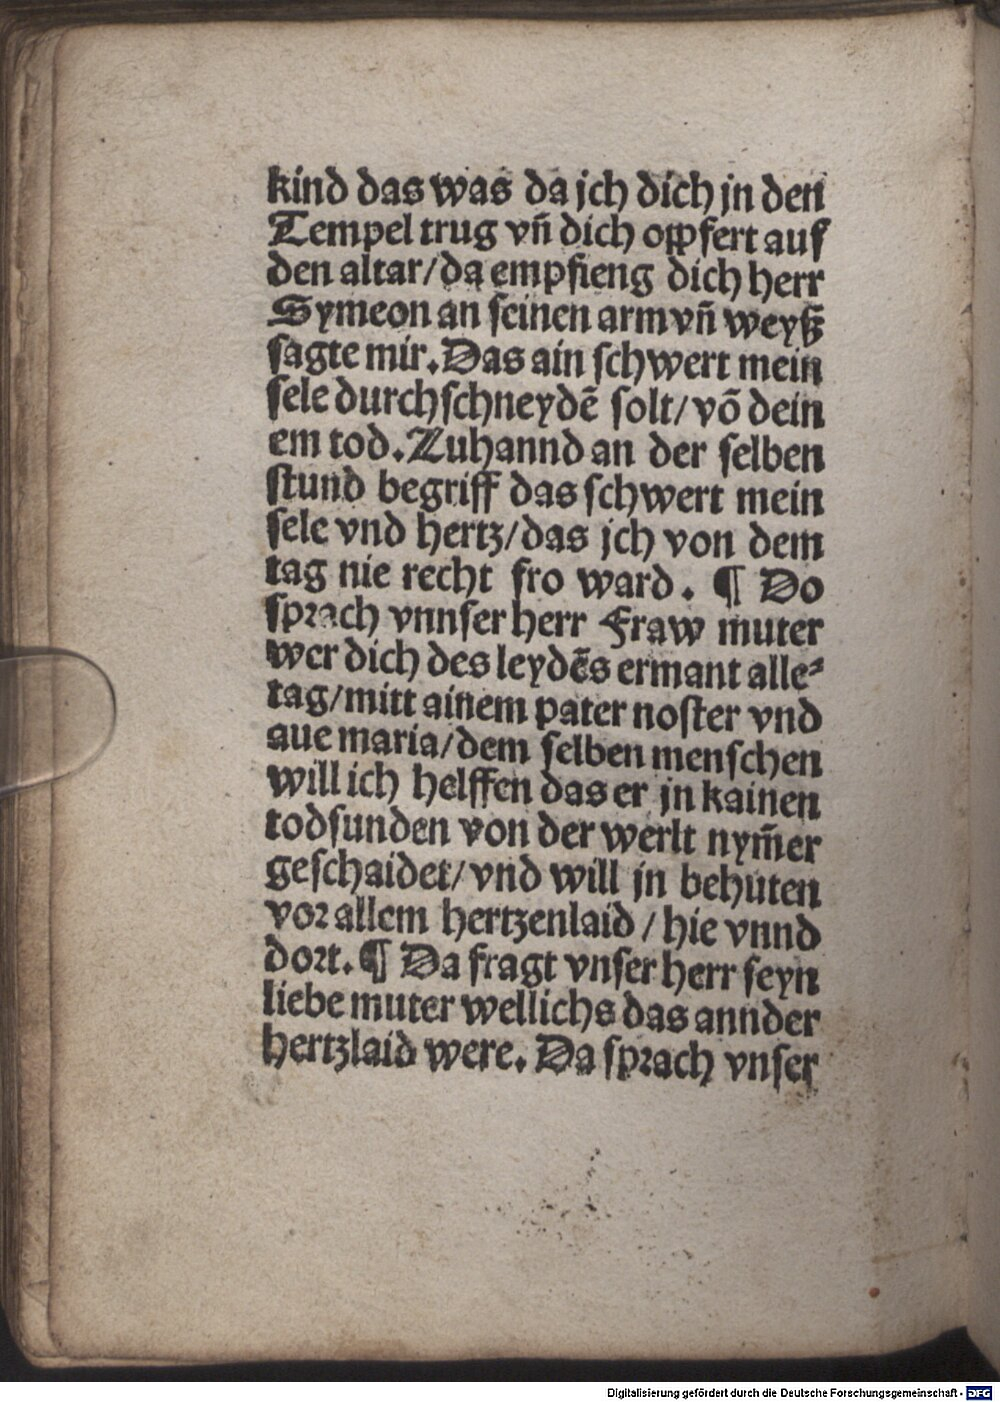 kind das was da jch dich jn den
Tempel trug vñ dich opffert auf
den altar/da empfieng dich herr
Symeon an seinen arm vñ weyß
sagte mir. Das ain schwert mein
sele durchschneydẽ solt/ võ dein
em tod. Zuhannd an der selben
stund begriff das schwert mein
sele vnd hertz/das jch von dem
tag nie recht fro ward. ¶ Do
sprach vnnser herr Fraw muter
wer dich des leydẽs ermant alle⸗
tag/mitt ainem pater noster vnd
aue maria/dem selben menschen
will ich helffen das er jn kainen
todsunden von der werlt nym̃er
geschaidet/vnd will jn behuten
vor allem hertzenlaid/hie vnnd
dort. ¶ Da fragt vnser herr seyn
liebe muter wellichs das annder
hertzlaid were. Da sprach vnser
Digitalisierung gefördert durch die Deutsche Forschungsgemeinschaft - DFG